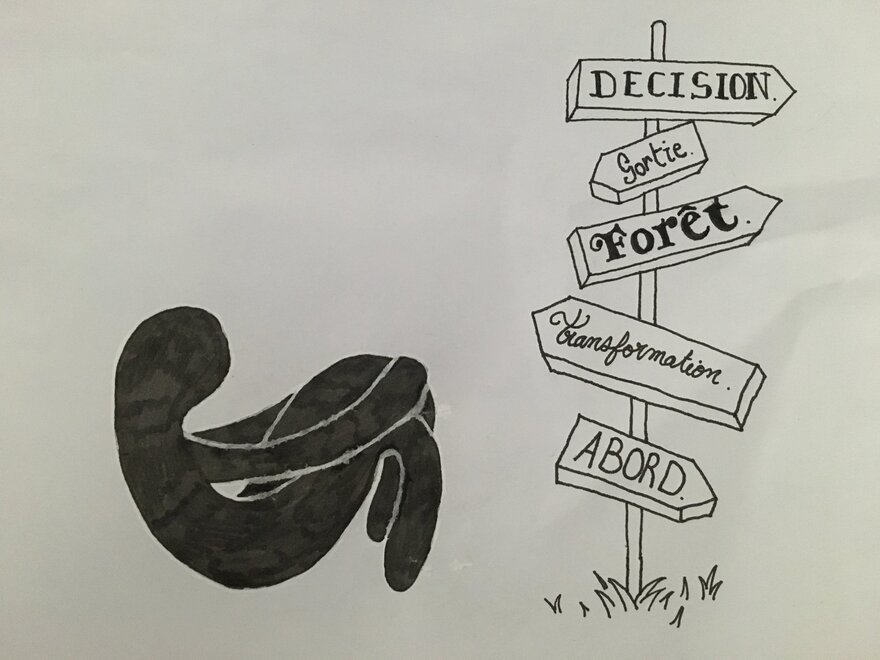 DECISION.
Sortie.
Forêt.
Transformation.
ABORD.